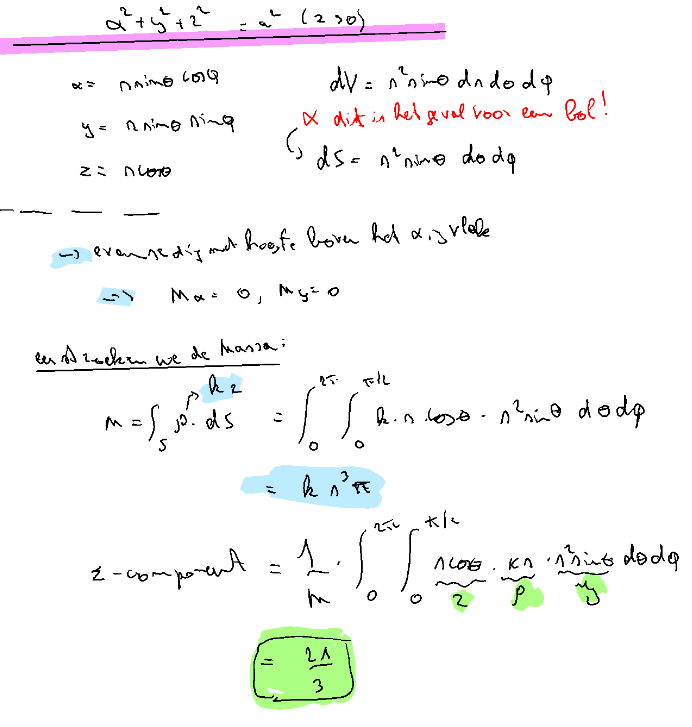 x² + y² + z² = a² (z>0)
x = r sinθ cosφ
dV = r² sinθ dr dθ dφ
dit is het geval voor een bol!
y = r sinθ sinφ
dS = r² sinθ dθ dφ
z = r cosθ
→ evenredig met hoogte boven het x,y vlak
→ Mx = 0, My = 0
eerst zoeken we de massa:
kz
m = ∫_S ρ · dS = ∫_0^{2π} ∫_0^{π/2} k · r cosθ · r² sinθ dθ dφ
= k r³ π
z-component = 1/m · ∫_0^{2π} ∫_0^{π/2} r cosθ · kr · r² sinθ dθ dφ
z ρ y
= 2r/3